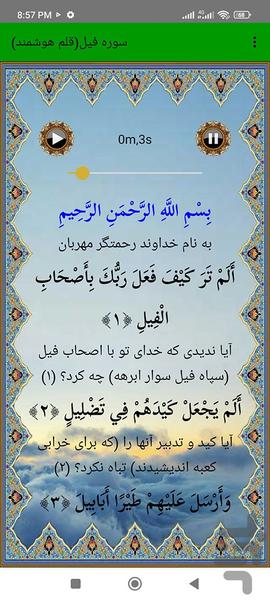 8:57 PM
سوره فیل(قلم هوشمند)
0m,3s
بِسْمِ اللَّهِ الرَّحْمَنِ الرَّحِيمِ
به نام خداوند رحمتگر مهربان
أَلَمْ تَرَ كَيْفَ فَعَلَ رَبُّكَ بِأَصْحَابِ
الْفِيلِ ﴿۱﴾
آیا ندیدی که خدای تو با اصحاب فیل
(سپاه فیل سوار ابرهه) چه کرد؟ (۱)
أَلَمْ يَجْعَلْ كَيْدَهُمْ فِي تَضْلِيلٍ ﴿۲﴾
آیا کید و تدبیر آنها را (که برای خرابی
کعبه اندیشیدند) تباه نکرد؟ (۲)
وَأَرْسَلَ عَلَيْهِمْ طَيْرًا أَبَابِيلَ ﴿۳﴾